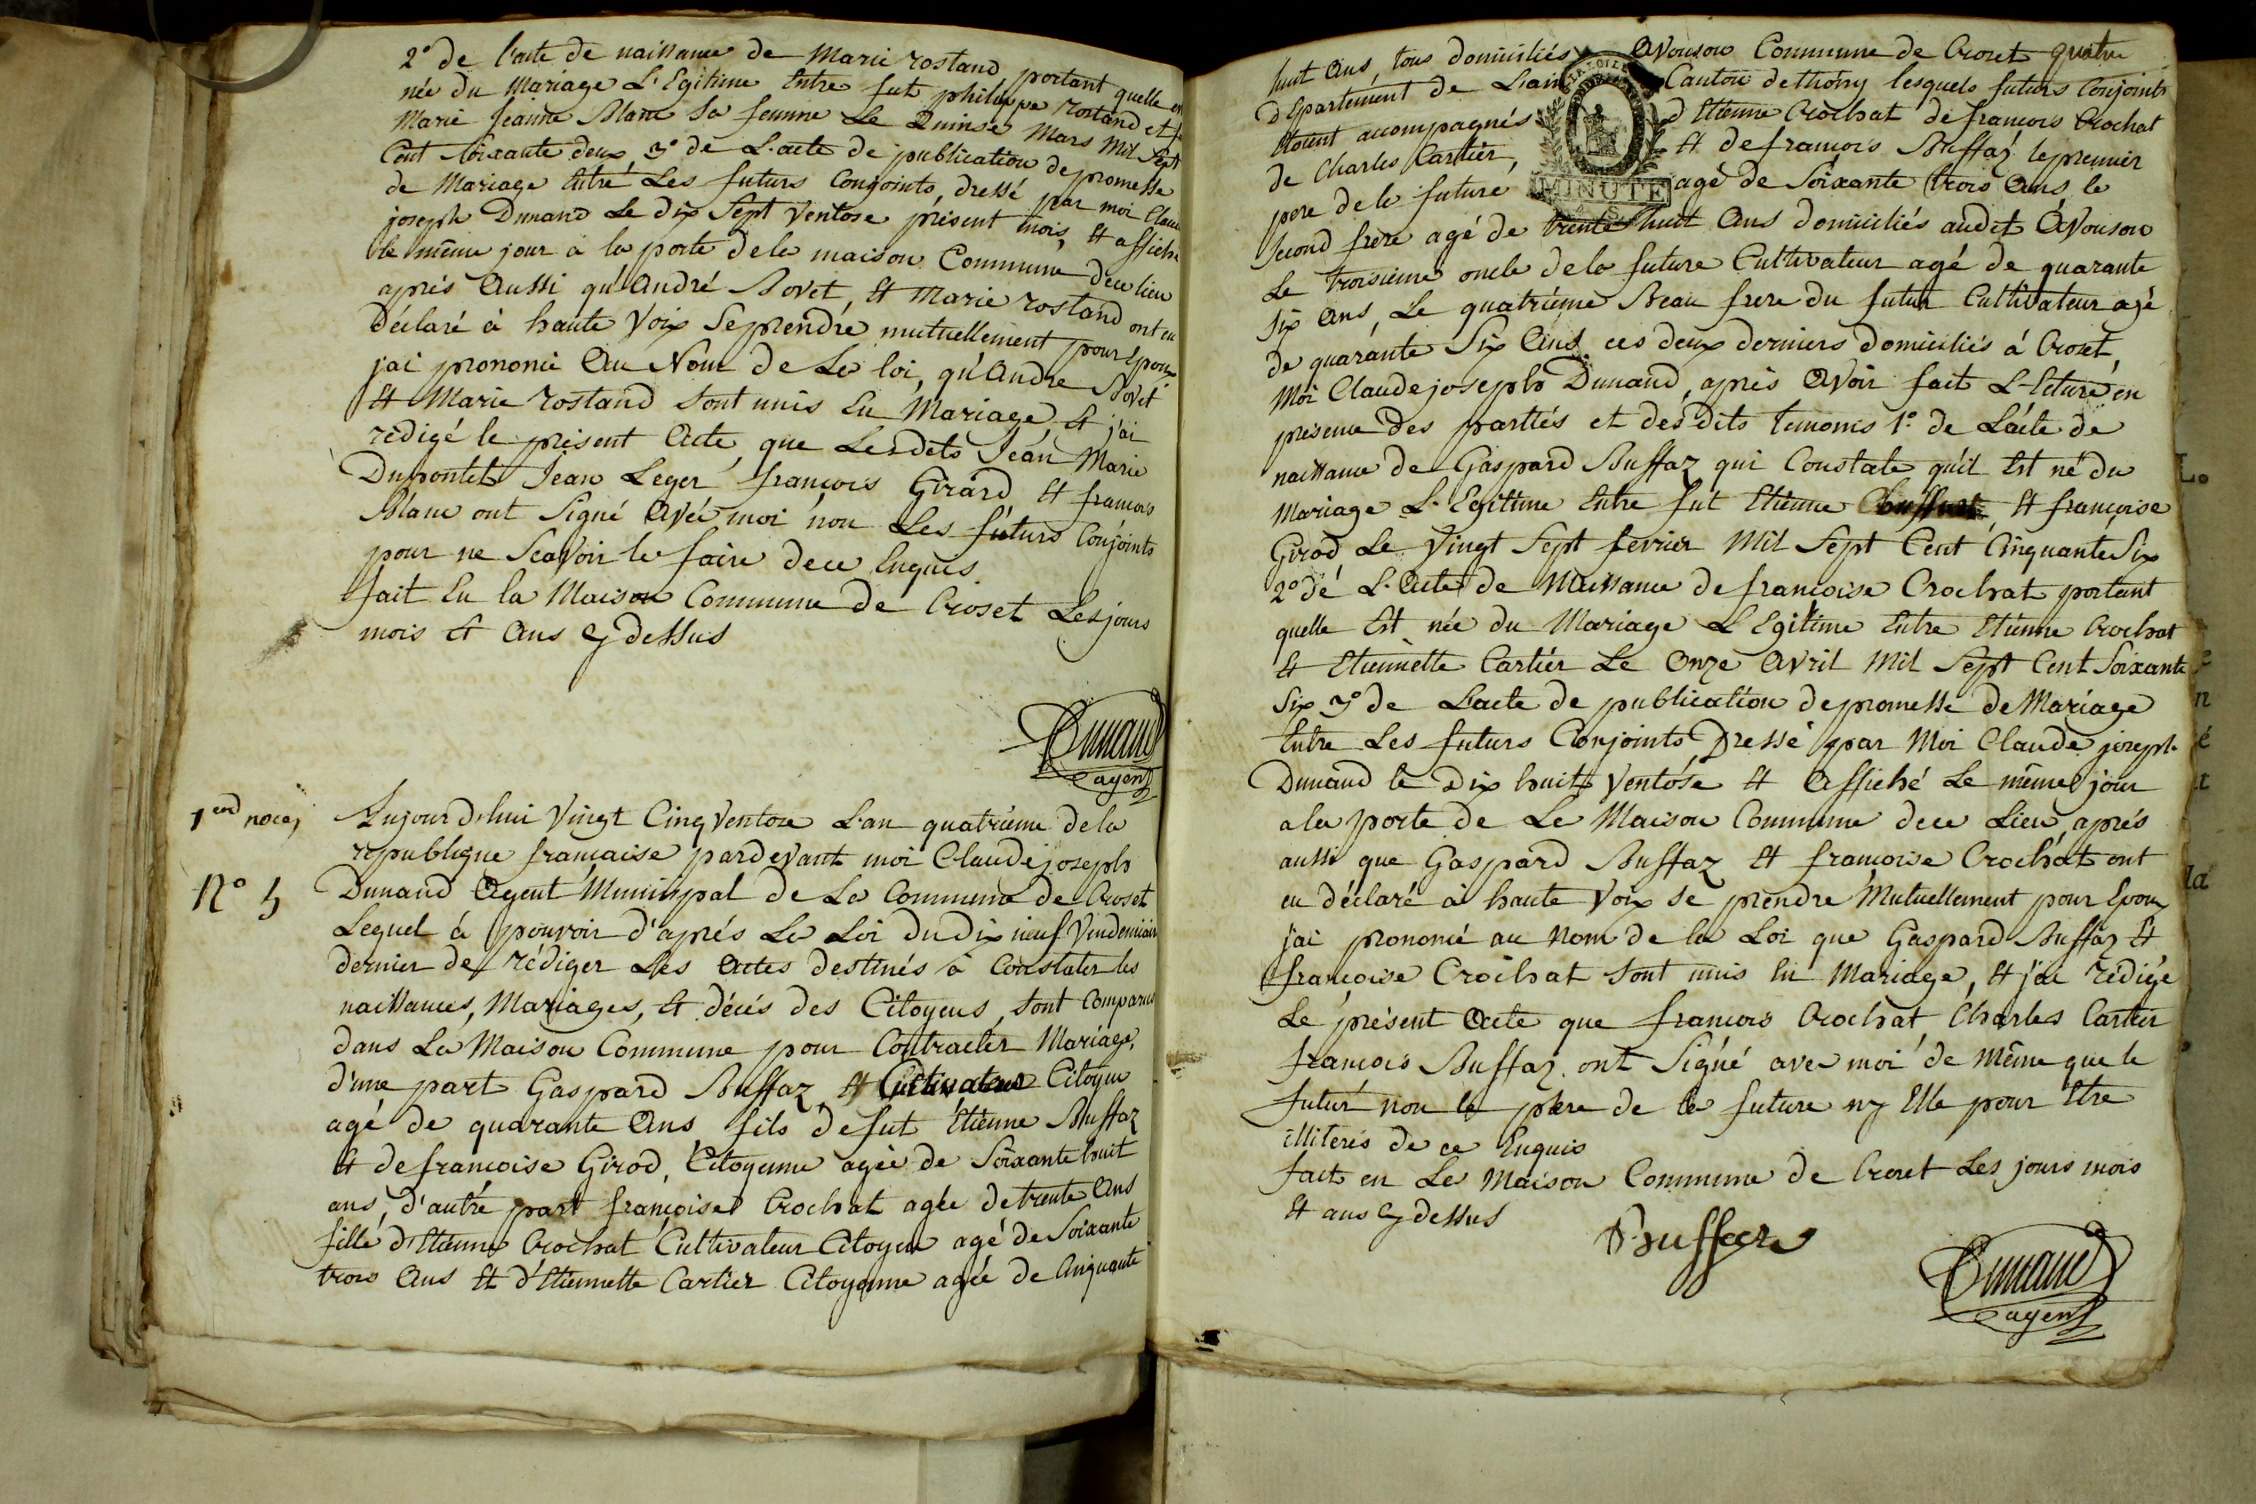 2° de l'acte de naissance de Marie rostand, portant quelle est
née du Mariage L'Egitime Entre fut philippe rostand et
Marie jeanne Blanc sa femme Le Quinse Mars Mil Sept
Cent Soixante deux, 3° de L'acte de publication de promesse
de Mariage Entre Les futurs Conjoints, dressé par moi Claude
joseph Dunand Le dix Sept Ventose présent mois, Et affiché
le même jour à la porte de la maison Commune dece lieu
aprés Aussi qu'André Bovet, Et Marie rostand ont eu
Déclaré à haute Voix Se prendre mutuellement pour Epoux
j'ai prononcé Au Nom de La loi, qu'André Bovet
Et Marie rostand Sont unis En Mariage, Et j'ai
rédigé le présent Acte, que Lesdits Jéan Marie
Dupontet Jean Leger françois Girard Et francois
Blanc ont Signé Avéc moi non Les futurs Conjoints
pour ne Scavoir le faire dece Enquis
fait En la Maison Commune de Croset Les jours
mois Et Ans Cy dessus
Dunand
agent
1eres noces
N° 5
Aujourd'hui Vingt Cinq Ventose L'an quatriéme de la
republique française pardevant moi Claude joseph
Dunand Agent Municipal de La Commune de Croset
Lequel à pouvoir d'aprés La Loi du dix neuf Vindemiaire
dernier de rédiger Les Actes destinés à Constater les
naissances, Mariages, Et décés des Citoyens, Sont Comparus
dans La Maison Commune pour Contracter Mariage,
d'une part Gaspard Buffaz Et Cultivateur Citoyen
agé de quarante Ans fils de fut Etienne Buffaz
Et de françoise Girod, Citoyenne agée de Soixante huit
ans, d'autre part françoise Crochat agée de trente Ans
fille d'Etienne Crochat Cultivateur Citoyen agé de Soixante
trois Ans Et d'Etiennette Cartier Citoyenne agée de Cinquante
huit Ans, tous domiciliés Avouson Commune de Croset
Département de L'ain Canton de thoiry lesquels futurs Conjoints
Etoient accompagnés d'Etienne Crochat de francois Crochat
de Charles Cartier, Et de francois Buffaz le premier
MINUTE
pere de la future agé de Soixante trois Ans le
Second frere agé de trente huit Ans domiciliés audit Avouson
Le troisieme oncle de la future Cultivateur agé de quarante
Six Ans, Le quatriéme Beau frere du futur Cultivateur agé
de quarante Six Ans ces deux derniers domiciliés à Croset,
Moi Claude joseph Dunand, aprés Avoir fait L'ecture en
presence des partiés et des dits temoins 1° de L'acte de
naissance de Gaspard Buffaz qui Constate qu'il Est né du
Mariage L'Egitime Entre fut Etienne Et françoise
Girod Le Vingt Sept fevrier Mil Sept Cent Cinquante Six
2° de L'Acte de Naissance de françoise Crochat portant
quelle Est née du Mariage L'Egitime Entre Etienne Crochat
Et Etiennette Cartier Le Onze Avril Mil Sept Cent Soixante
Six 3° de L'acte de publication de promesse de Mariage
Entre Les futurs Conjoints Dressé par Moi Claude joseph
Dunand le Dix huit Ventose Et Affiché Le même jour
a la porte de La Maison Commune dece Lieu, aprés
aussi que Gaspard Buffaz Et françoise Crochat ont
eu déclaré à haute Voix se prendre Mutuellement pour Epoux
j'ai prononcé au Nom de la Loi que Gaspard Buffaz Et
françoise Crochat Sont unis En Mariage, Et j'ai rédigé
Le présent Acte que francois Crochat, Charles Cartier
francois Buffaz ont Signé avec moi de Même que le
futur non le pere de la future ny Elle pour Etre
illiterés de ce Enquis
fait en La Maison Commune de Croset Les jours mois
Et ans Cy dessus
Buffaz
Dunand
agent